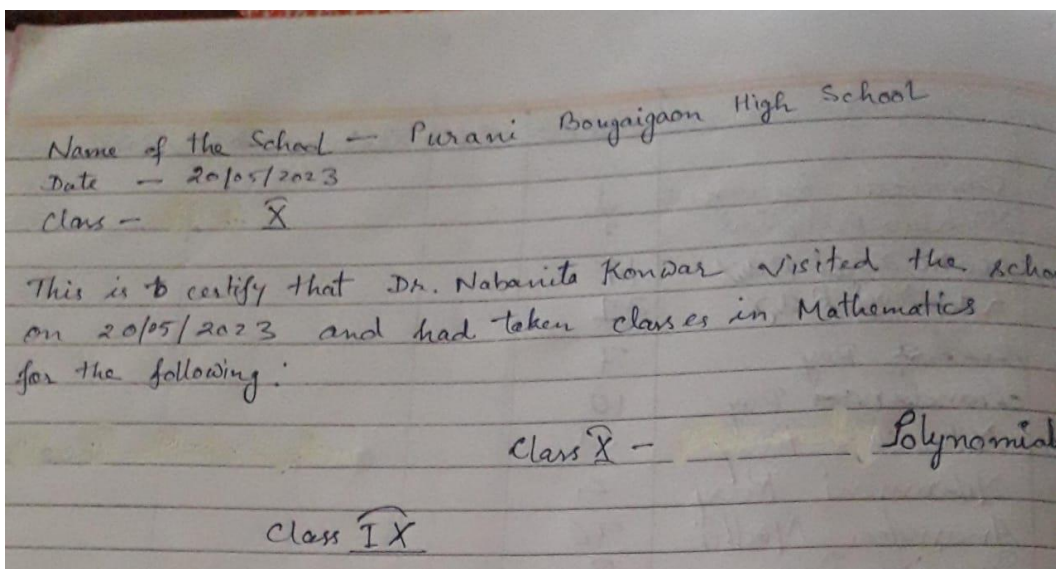 Name of the School - Purani Bongaigaon High School
Date - 20/05/2023
Class - X
This is to certify that Dr. Nabanita Konwar visited the scho
on 20/05/2023 and had taken classes in Mathematics
for the following:
Class X - Polynomial
Class IX